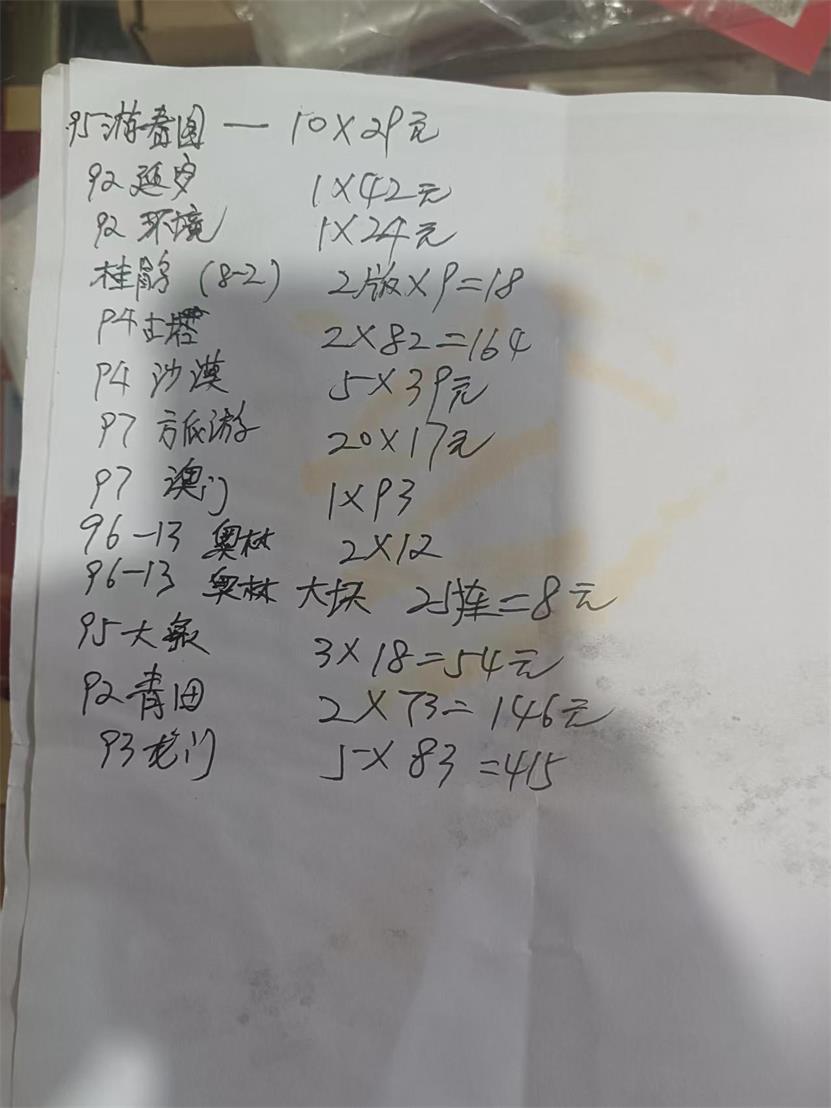 95游春图 — 10×29元
92延安 1×42元
92环境 1×24元
桂鹃(8-2) 2版×9=18
94古塔 2×82=164
94沙漠 5×39元
97 旅游 20×17元
97 澳门 1×93
96-13 奥林 2×12
96-13 奥林 大块 25=8元
95大 3×18=54元
92青田 2×73=146元
93龙门 5×83=415